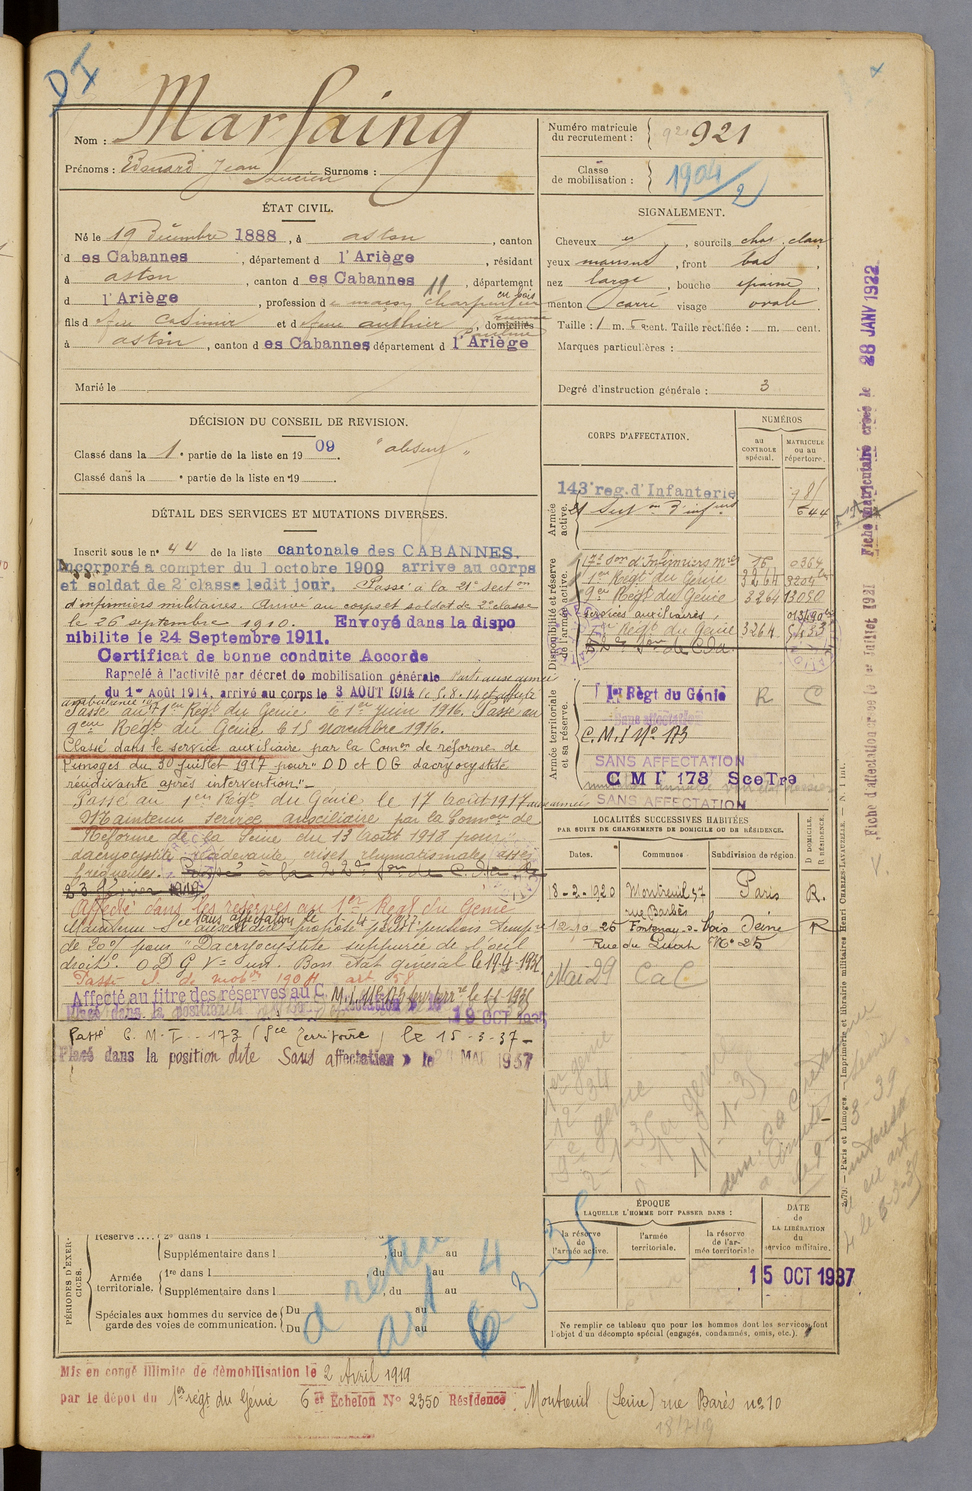 DI
Nom : Marfaing
Prénoms : Edouard Jean Lucien Surnoms :
ÉTAT CIVIL.
Né le 19 Décembre 1888, à aston, canton
d es Cabannes, département d l'Ariège, résidant
à aston, canton d es Cabannes 11, département
d l'Ariège, profession d e maçon charpentier en bois
fils d e feu Casimir et d e feue authier, domiciliés
à aston, canton d es Cabannes département d l'Ariège
Marié le
DÉCISION DU CONSEIL DE REVISION.
Classé dans la 1e partie de la liste en 1909. "absent"
Classé dans la e partie de la liste en 19
DÉTAIL DES SERVICES ET MUTATIONS DIVERSES.
Inscrit sous le no 44 de la liste cantonale des CABANNES.
Incorporé a compter du 1 octobre 1909 arrive au corps
et soldat de 2e classe ledit jour, Passé à la 21e Section
d'infirmiers militaires. Arrivé au corps et soldat de 2e classe
le 26 septembre 1910. Envoyé dans la dispo
nibilite le 24 Septembre 1911.
Certificat de bonne conduite Accordé
Rappelé à l'activité par décret de mobilisation générale
du 1er Août 1914, arrivé au corps le 3 AOUT 1914
Passé au 1er Régt du Génie le 1er juin 1916. Passé au
9eme Régt du Génie le 15 novembre 1916.
Classé dans le service auxiliaire par la Comon de réforme de
Limoges du 30 juillet 1917 pour "OD et OG dacryocystite
récidivante après intervention".
Passé au 1er Régt du Génie le 17 Août 1917 aux armées
Maintenu service auxiliaire par la Common de
Réforme de la Seine du 13 Août 1918 pour
dacryocystite récidivante, crises rhumatismales assez
fréquentes. Passé à la 22e Son de C.O.A. le
23 février 1919
Affecté dans les réserves au 1er Régt du Génie
Maintenu Sce auxiliaire proposé pour pension tempre
de 20% pour "Dacryocystite suppurée de l'oeil
droit". Bon état général le 19-4-1932.
Affecté au titre des réserves au C.M.I.
19 OCT 1935
Passé C.M.I - 173 (Sce Territoire) le 15-3-37-
Placé dans la position dite Sans affectation le 23 MAI 1937
PÉRIODES D'EXERCICES.
Réserve 2e dans l
Supplémentaire dans l , du au
Armée territoriale. 1re dans l , du au
Supplémentaire dans l , du au
Spéciales aux hommes du service de garde des voies de communication. Du au
Du au
Numéro matricule du recrutement : 921
Classe de mobilisation : 1904/2
SIGNALEMENT.
Cheveux , sourcils chat. clair
yeux marrons, front bas
nez large, bouche épaisse
menton carré visage ovale
Taille : 1 m. cent. Taille rectifiée : m. cent.
Marques particulières :
Degré d'instruction générale : 3
CORPS D'AFFECTATION.
NUMÉROS
au CONTROLE spécial.
MATRICULE ou au répertoire.
Armée active.
143e reg. d'Infanterie
21e Section d'infirmiers 644
Disponibilité et réserve de l'armée active.
17e Son d'Infirmiers Mres 76 0364
1er Régt du Génie 3264
9er Régt du Génie 3264 13090
Services auxiliaires
1er Régt du Génie 3264
22e Son de C.O.A.
Armée territoriale et sa réserve.
1er Règt du Génie R C
Sans affectation
C.M.I No 173
SANS AFFECTATION
CMI 173 Sce Tre
SANS AFFECTATION
LOCALITÉS SUCCESSIVES HABITÉES
PAR SUITE DE CHANGEMENTS DE DOMICILE OU DE RÉSIDENCE.
D DOMICILE. R RÉSIDENCE.
Dates. Communes. Subdivision de région.
18-2-1920 Montreuil 57 rue Barbès Paris R.
12.10.26 Fontenay-s-bois Seine R
Rue du Quart No 25
Mai 29 CaC
1er génie
12-34
9e génie
ÉPOQUE
A LAQUELLE L'HOMME DOIT PASSER DANS :
la réserve de l'armée active.
l'armée territoriale.
la réserve de l'armée territoriale
DATE de LA LIBÉRATION du service militaire.
15 OCT 1937
Ne remplir ce tableau que pour les hommes dont les services font l'objet d'un décompte spécial (engagés, condamnés, omis, etc.).
Fiche matriculaire créée le 28 JANV 1922
Fiche d'affectation créée le 1er Juillet 1921
Paris et Limoges. — Imprimerie et librairie militaires Henri CHARLES-LAVAUZELLE.
Mis en congé illimité de démobilisation le 2 Avril 1919
par le dépot du 1er régt du Génie 6e Echelon No 2350 Résidence Montreuil (Seine) rue Barbès no 10